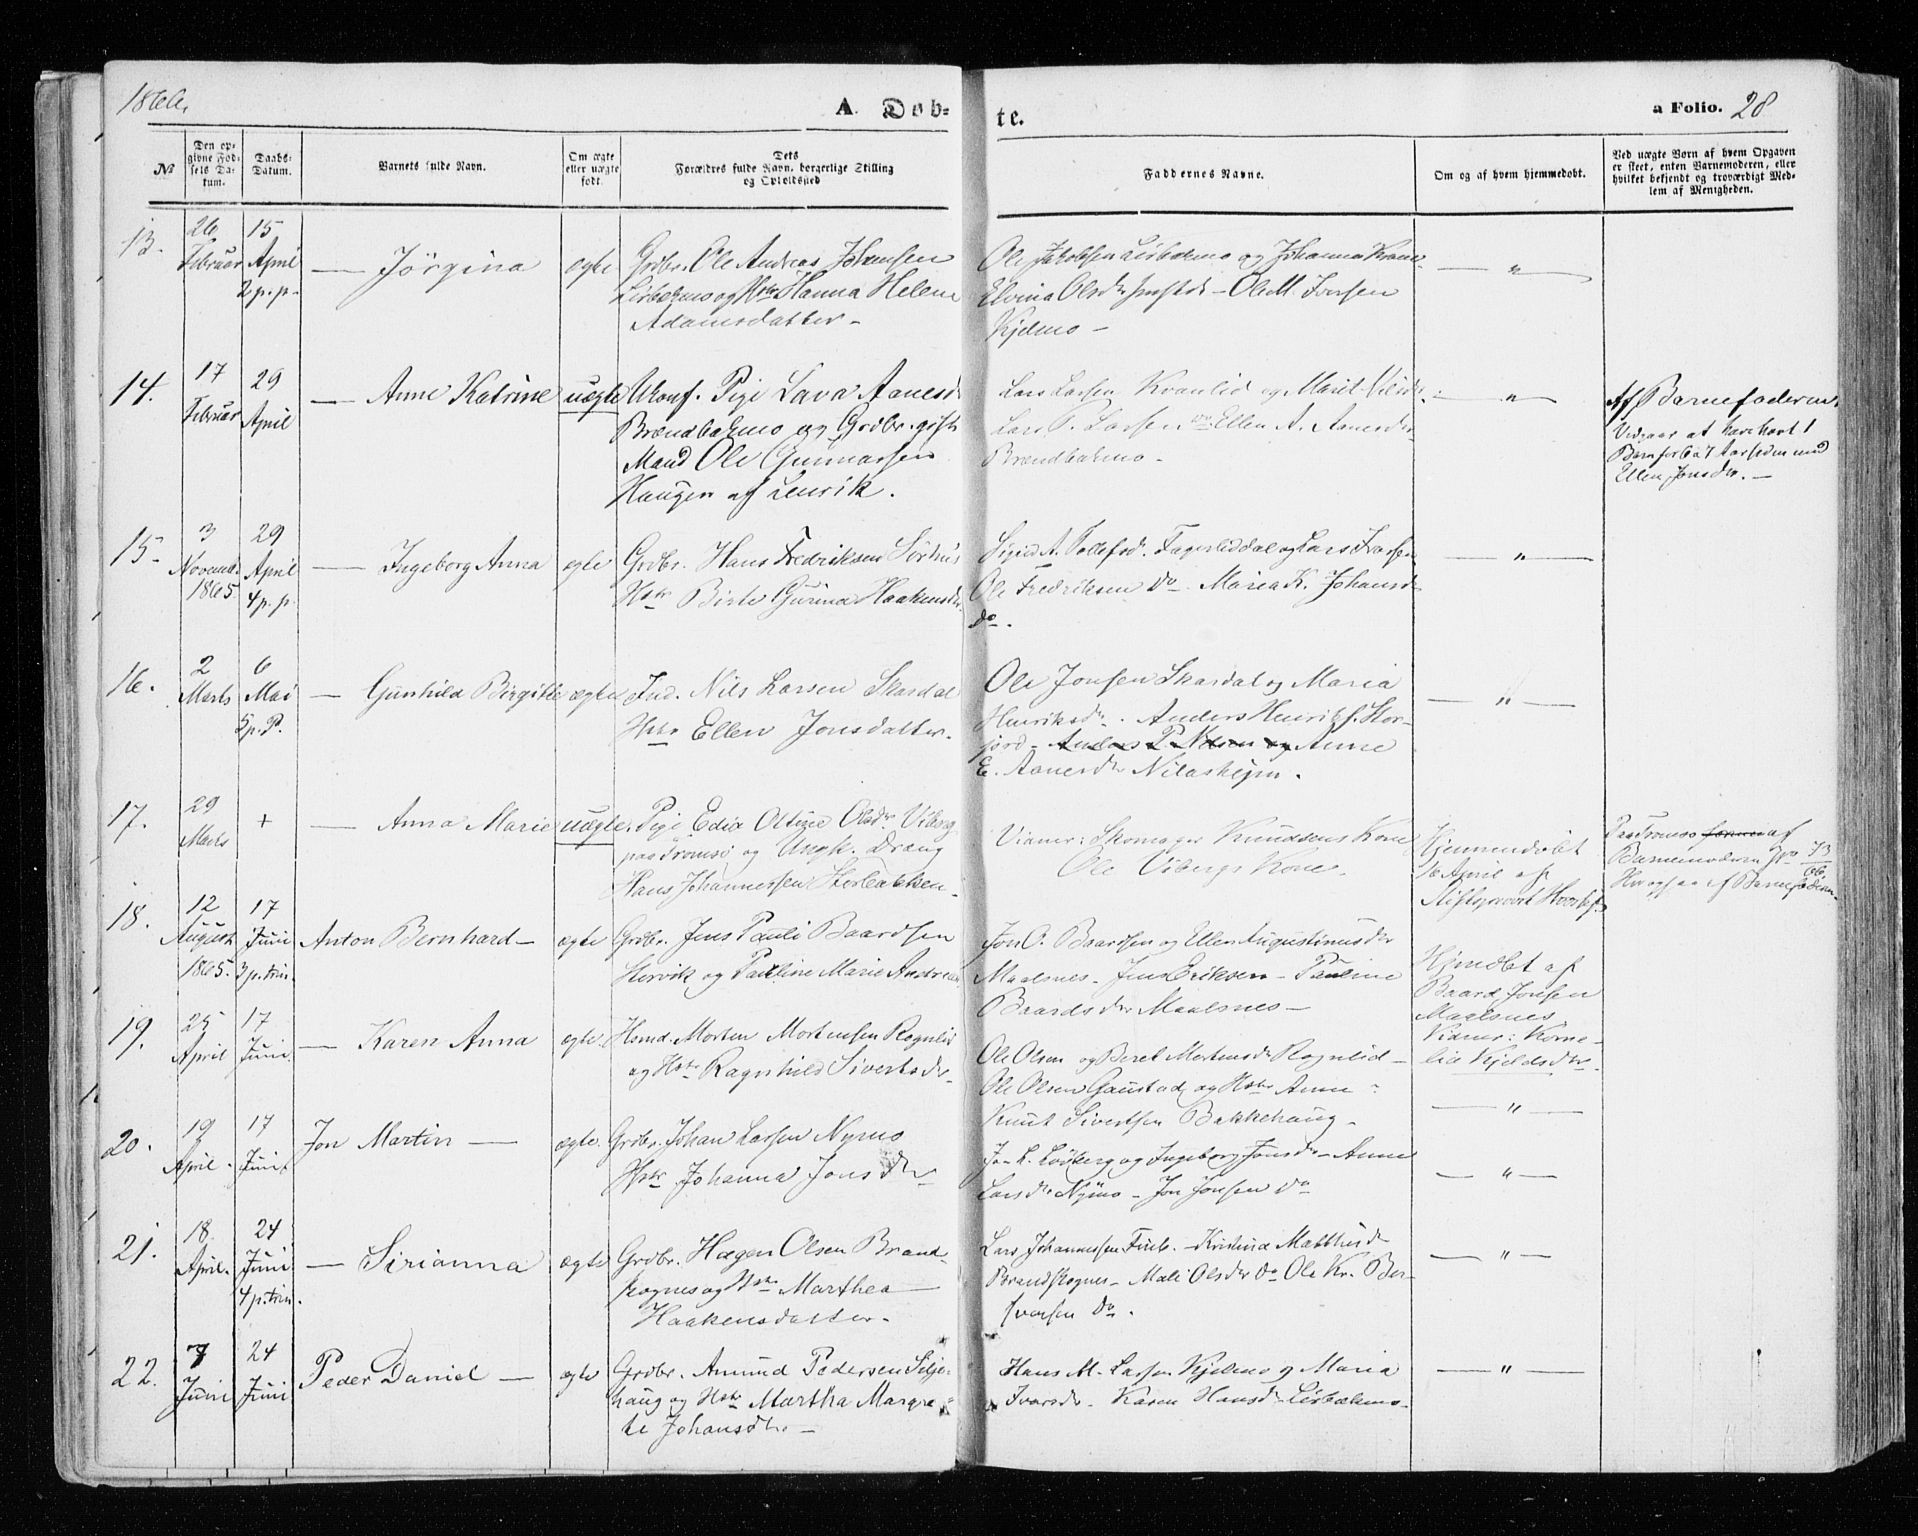 1866.
A. Døb-
te.
a Folio. 28
No
Den op-
givne Fød-
sels Da-
tum.
Daabs-
Datum.
Barnets fulde Navn.
Om ægte
eller uægte
født.
Dets
Forældres fulde Navn, borgerlige Stilling
og Opholdssted
Faddernes Navne.
Om og af hvem hjemmedøbt.
Ved uægte Børn af hvem Opgaven
er skeet, enten Barnemoderen, eller
hvilket bekjendt og troværdigt Med-
lem af Menigheden.
13.
26
Februar
15
April
2 p. p.
— Jörgina
ægte
Grdbr. Ole Andreas Johansen
og Hstr Hanna Helene
Adamsdatter –
Ole Jakobsen og Johanna Kone
Elvina Olsdr – Ole M. Ivarsen
Kjelmo –
— " —
14.
17
Februar
29
April
— Anne Katrine
uægte
Ukonf. Pige Lava Aanesd
Brændbakmo og Grdbr. gift
Mand Ole Gunnarsen
Haugen af Lenvik.
Lars Larsen Kvanlid og Marit
Lars P. Larsen do Ellen A. Aanesdr
Brændbakmo –
— " —
Af Barnefaderen.
Vedgaar at have havt 1
Barn for 6 a 7 Aar siden med
Ellen Jonsdr. —
15.
3
Novemb.
1865.
29
April
4 p. p.
— Ingeborg Anna
ægte
Grdbr. Hans Fredriksen Sörhus
Hstr Birte Gurina Haakensdr.
A. Tollefsd. Fagerliddal og Lars Ivarsen
Ole Fredriksen do – Maria K. Johansd
do.
— " —
16.
2
Marts
6
Mai
5 p. P.
— Gunhild Birgitte
ægte
Ind. Nils Larsen Skardal
Hstr Ellen Jonsdatter.
Ole Jonsen Skardal og Maria
Henriksdr. Anders Henriks. Stor-
fjord – Anders P. Nilsen og Anne
E. Aanesdr Nilashejm.
— " —
17.
29
Marts
+
— Anna Marie
uægte.
Pige Edia Oltine Olsdr Viberg
paa Tromsö og Ungk. Dreng
Hans Johannessen Storbakken.
Vidner: Skomager Knudsens Kone
Ole Vibergs Kone.
Hjemmedöbt
16 April af
Stiftsprovst
Paa Tromsö af
Barnemoderen
af Barnefaderen.
18.
12
August
1865.
17
Juni
3 p. trin.
Anton Bernhard –
ægte
Grdbr. Jens Pauli Baardsen
og Pauline Marie
Jon O. Baardsen og Ellen Augustinusdr
Maalsnes – Jens Eriksen – Pauline
Baardsdr Maalsnes –
Hjmdbt af
Baard Jonsen
Maalsnes
Vidner: Korne-
lia Kjeldsdtr.
19.
25
April
17
Juni
— Karen Anna
ægte
Hsmd. Morten Mortensen Rognlid
og Hstr Ragnhild Sivertsdr.
Ole Olsen og Beret Mortensdr Rognlid –
Ole Olsen Gaustad og Hstr Anne –
Knut Sivertsen Bakkehaug –
— " —
20.
19
April.
17
Juni
Jon Martin —
ægte.
Grdbr. Johan Larsen Nymo
Hstr Johanna Jonsdr
Jo L. og Ingeborg Jonsdr – Anne
Larsdr Nymo – Jon Jonsen do
— " —
21.
18.
April.
24
Juni
4 p. trin.
— Sirianna
ægte
Grdbr. Hagen Olsen Brand-
skognes og Hstr Marthea —
Haakensdatter.
Lars Johannessen – Kristina Matthisdr
Brandskognes – Mali Olsdr do Ole Kr. Ber-
do.
— " —
22.
7
Juni
24
Juni
Peder Daniel —
ægte
Grdbr. Amund Pedersen Silje-
haug og Hstr Martha Margre-
te Johansdtr. –
Hans M. Larsen Kjelmo og Maria
Ivarsdr – Karen Hansdr
— " —